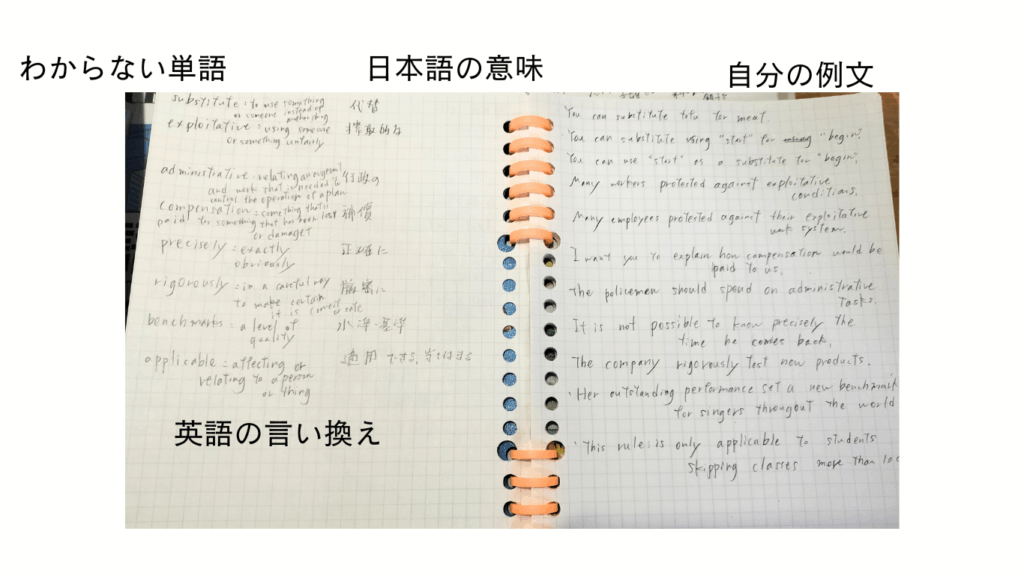 わからない単語
日本語の意味
自分の例文
substitute : to use something 代替
or someone instead of
exploitative : using someone 搾取的な
or something unfairly
administrative : relating 行政の
and work that is needed to
control the operation of a plan
compensation : something that is 補償
paid for something that has been lost
or damaget
precisely : exactly 正確に
obviously
rigorously : in a careful way 厳密に
to make certain
it is correct or safe
benchmarks : a level of 水準・基準
quality
applicable : affecting or 適用できる,
relating to a person
or thing
英語の言い換え
You can substitute tofu for meat.
You can substitute using "start" for "begin".
You can use "start" as a substitute for "begin".
Many workers protected against exploitative
conditions.
Many employees protected against their exploitative
work system.
I want you to explain how compensation would be
paid to us.
The policemen should spend on administrative
tasks.
It is not possible to know precisely the
time he comes back.
The company rigorously test new products.
・Her outstanding performance set a new benchmark
for singers througout the world
・This rule is only applicable to students
skipping classes more than